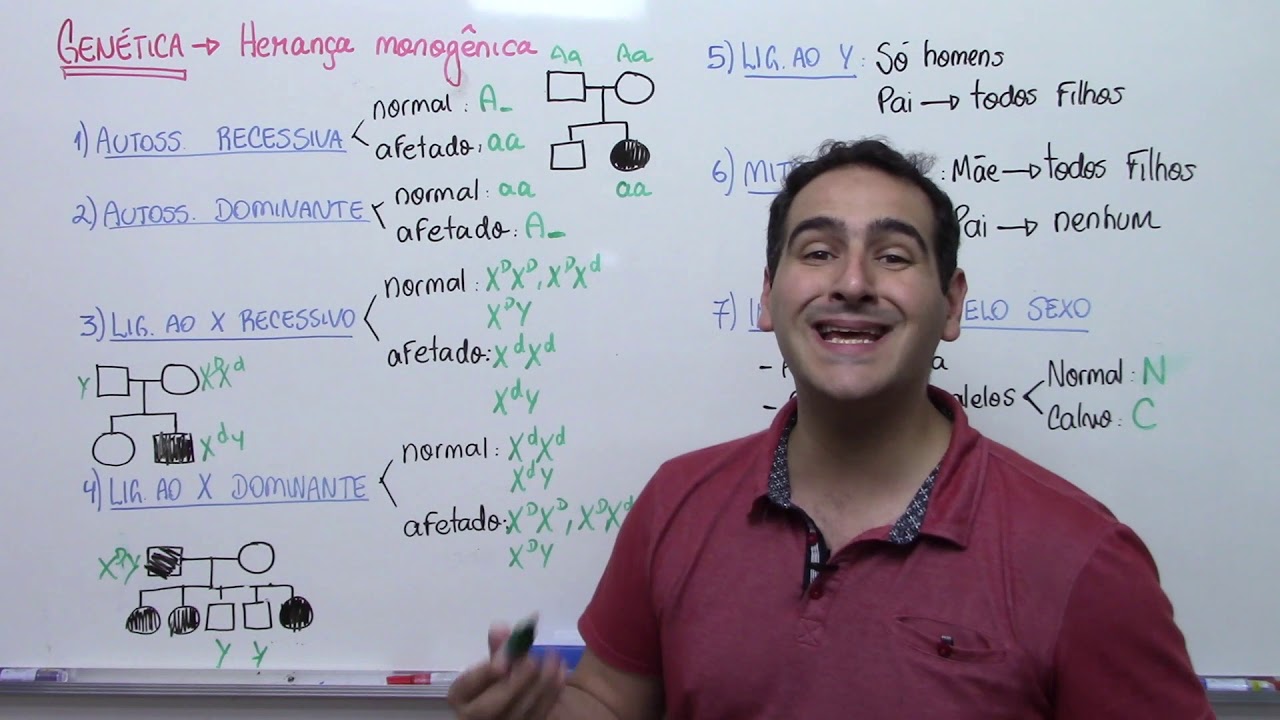 GENÉTICA → Herança monogênica
1) AUTOSS. RECESSIVA
normal: A_
afetado: aa
Aa Aa
aa
2) AUTOSS. DOMINANTE
normal: aa
afetado: A_
3) LIG. AO X RECESSIVO
normal: XᴰXᴰ, XᴰXᵈ
XᴰY
afetado: XᵈXᵈ
XᵈY
Y XᴰXᵈ
XᵈY
4) LIG. AO X DOMINANTE
normal: XᵈXᵈ
XᵈY
afetado: XᴰXᴰ, XᴰXᵈ
XᴰY
XᴰY
Y Y
5) LIG. AO Y: Só homens
Pai → todos Filhos
6) : Mãe → todos Filhos
Pai → nenhum
7) SEXO
-
- alelos
Normal: N
Calvo: C